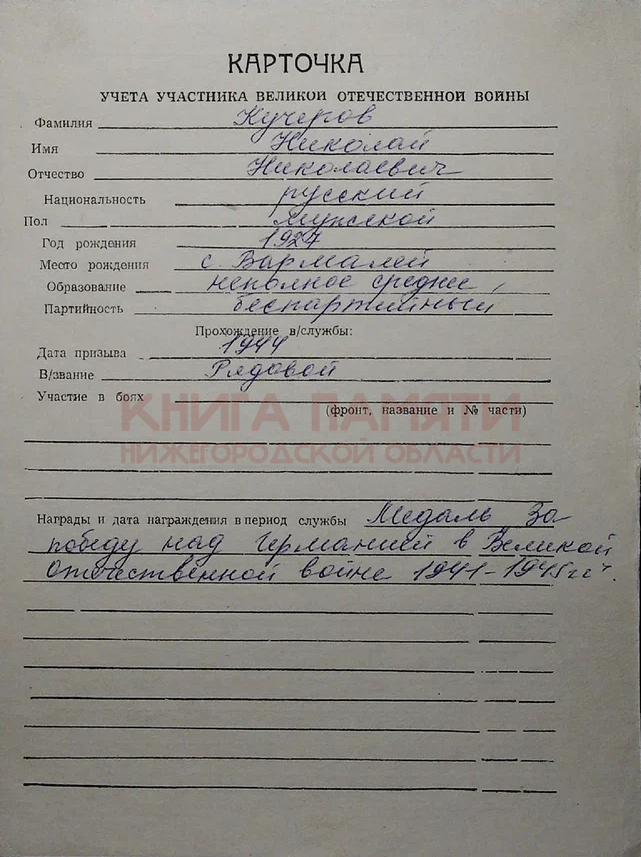 КАРТОЧКА
УЧЕТА УЧАСТНИКА ВЕЛИКОЙ ОТЕЧЕСТВЕННОЙ ВОЙНЫ
Фамилия Кучеров
Имя Николай
Отчество Николаевич
Национальность русский
Пол мужской
Год рождения 1927
Место рождения с Вармалей
Образование неполное среднее,
Партийность беспартийный
Прохождение в/службы:
Дата призыва 1944
В/звание Рядовой
Участие в боях
(фронт, название и № части)
КНИГА ПАМЯТИ
НИЖЕГОРОДСКОЙ ОБЛАСТИ
Награды и дата награждения в период службы Медаль За
победу над Германией в Великой
отечественной войне 1941-1945гг"